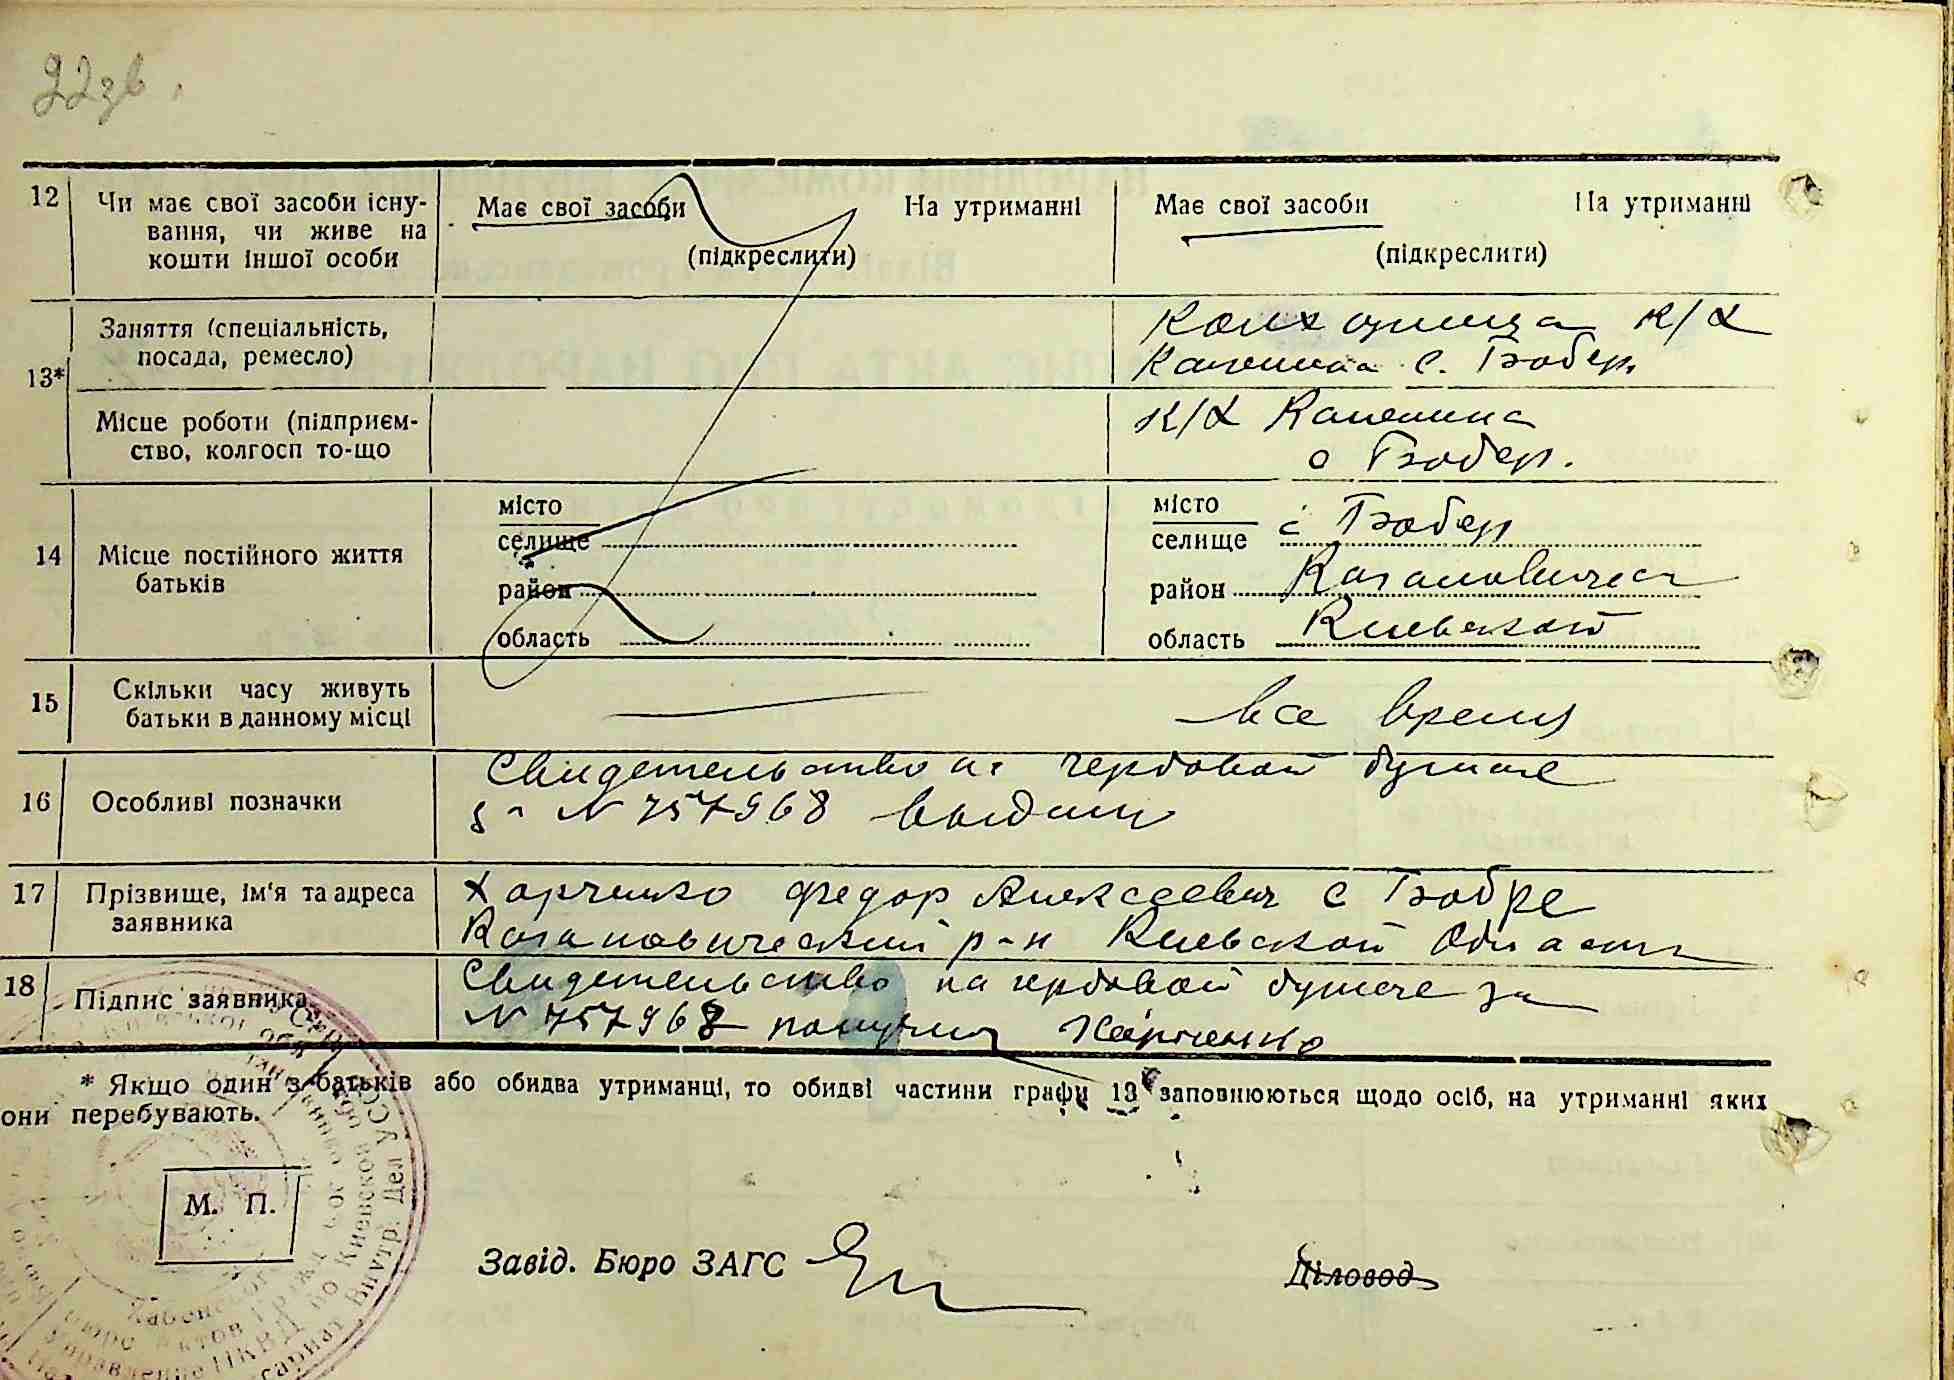 22зв.
12
Чи має свої засоби існу-
вання, чи живе на
кошти іншої особи
Має свої засоби На утриманні
(підкреслити)
Має свої засоби На утриманні
(підкреслити)
13*
Заняття (спеціальність,
посада, ремесло)
Колхозница к/х
Каленина с. Бобер.
Місце роботи (підприєм-
ство, колгосп то-що
к/х Каленина
с Бобер.
14
Місце постійного життя
батьків
місто
селище
район
область
місто
селище с Бобер
район Кагановическ
область Киевской
15
Скільки часу живуть
батьки в данному місці
все время
16
Особливі позначки
Свидетельство на гербовой бумаге
за N 757968 выдан
17
Прізвище, ім'я та адреса
заявника
Харченко Федор Алексеевич с Бобре
Кагановический р-н Киевской Области
18
Підпис заявника
Свидетельство на гербовой бумаге за
N 757968 получил Харченко
* Якщо один з батьків або обидва утриманці, то обидві частини графи 13 заповнюються щодо осіб, на утриманні яких
они перебувають.
М. П.
Завід. Бюро ЗАГС
Діловод
Внутр. Дел УССР
по Киевской